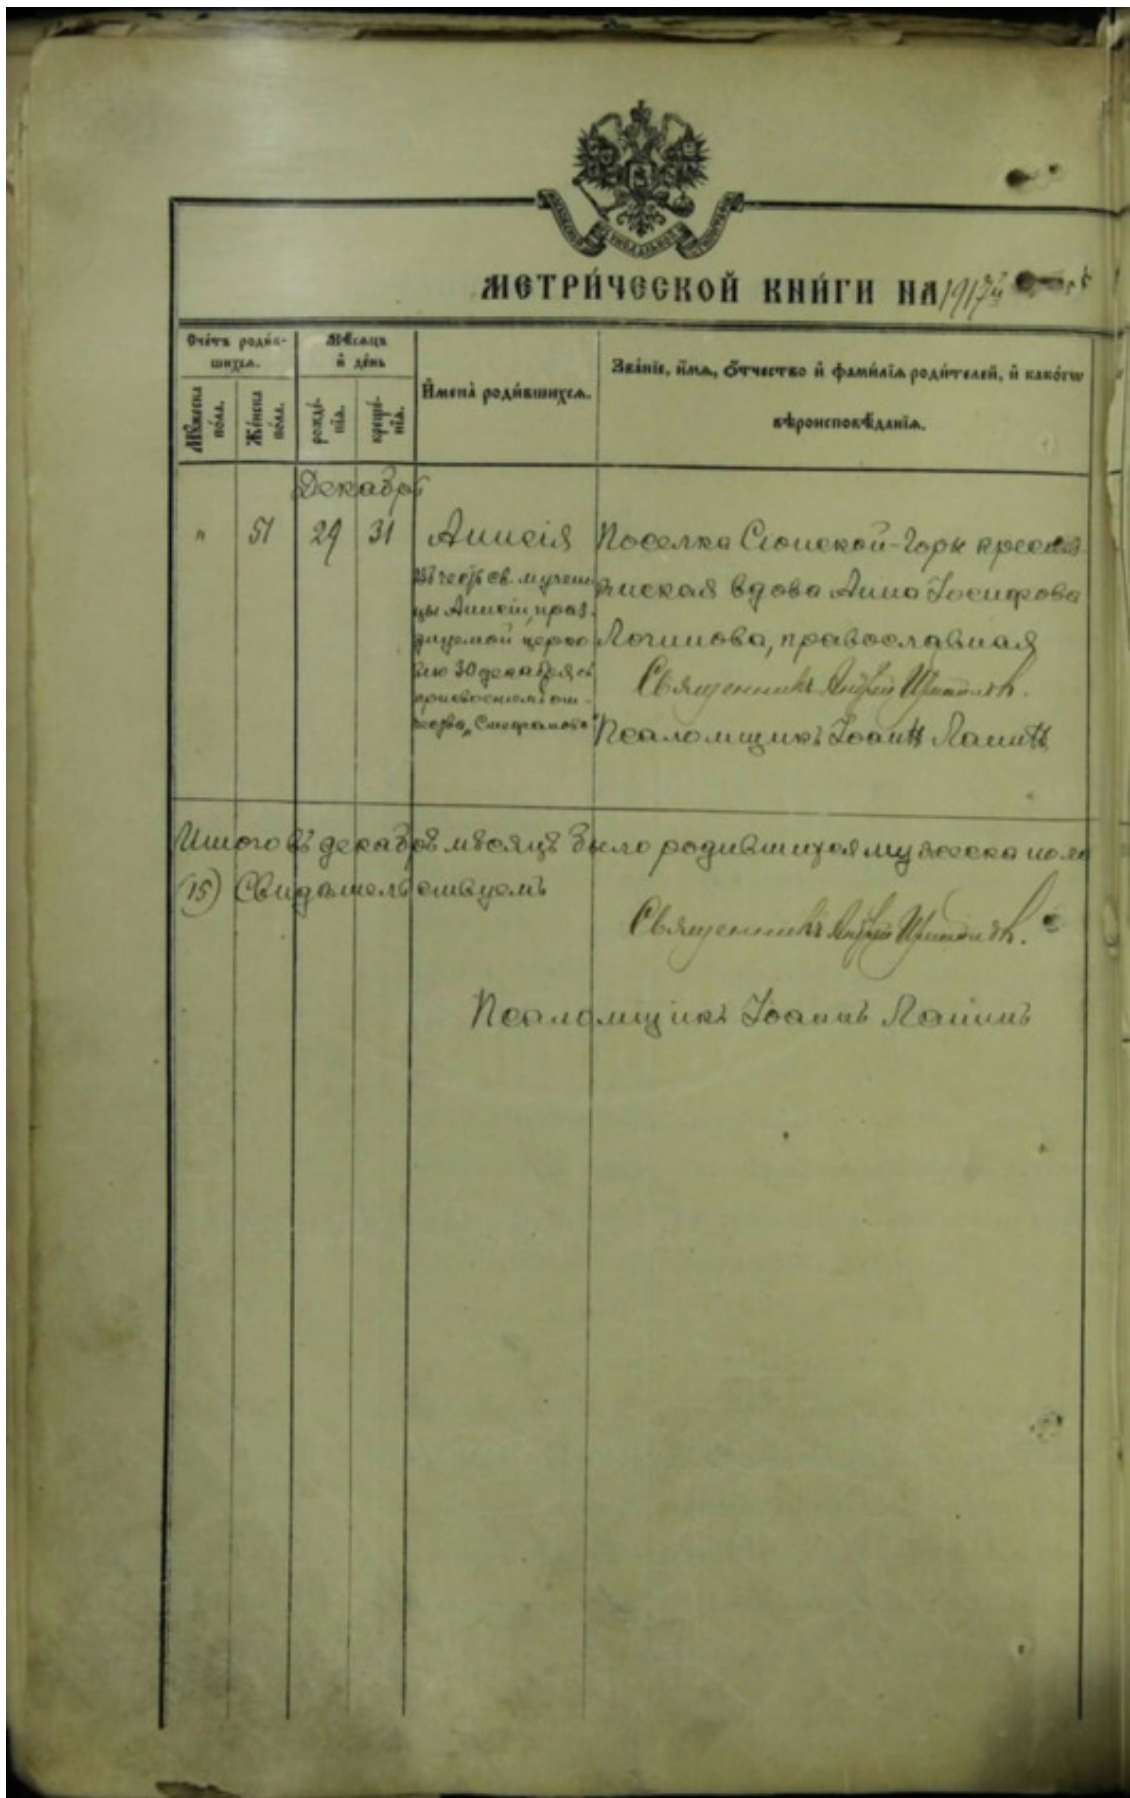 МЕТРИ́ЧЕСКОЙ КНИ́ГИ НА 1917й
Сче́тъ роди́в-
шихсѧ.
Мѣсѧцъ
и҆ де́нь
Мꙋ́жеска
по́ла.
Же́нска
по́ла.
рожде́-
нїѧ.
креще́-
нїѧ.
И҆мена̀ роди́вшихсѧ.
Зва́нїе, и҆́мѧ, ѻ҆́тчество и҆ фами́лїѧ роди́телей, и҆ како́гѡ
вѣроисповѣ́данїѧ.
Декабрь
" 51 29 31 Анисія
Въ честь св. мучени-
цы Анисіи, праз-
днуемой церко-
вію 30 декабря съ
присвоеніемъ от-
чества „Стефановна"
Поселка Сіонской-Горы кресть-
янская вдова Анна Іосифова
Логинова, православная
Священникъ Андрей
Псаломщикъ Іоаннъ Лапинъ
Итого въ декабрѣ мѣсяцѣ было родившихся мужеска пола
(15) Свидѣтельствуемъ
Священникъ Андрей
Псаломщикъ Іоаннъ Лапинъ